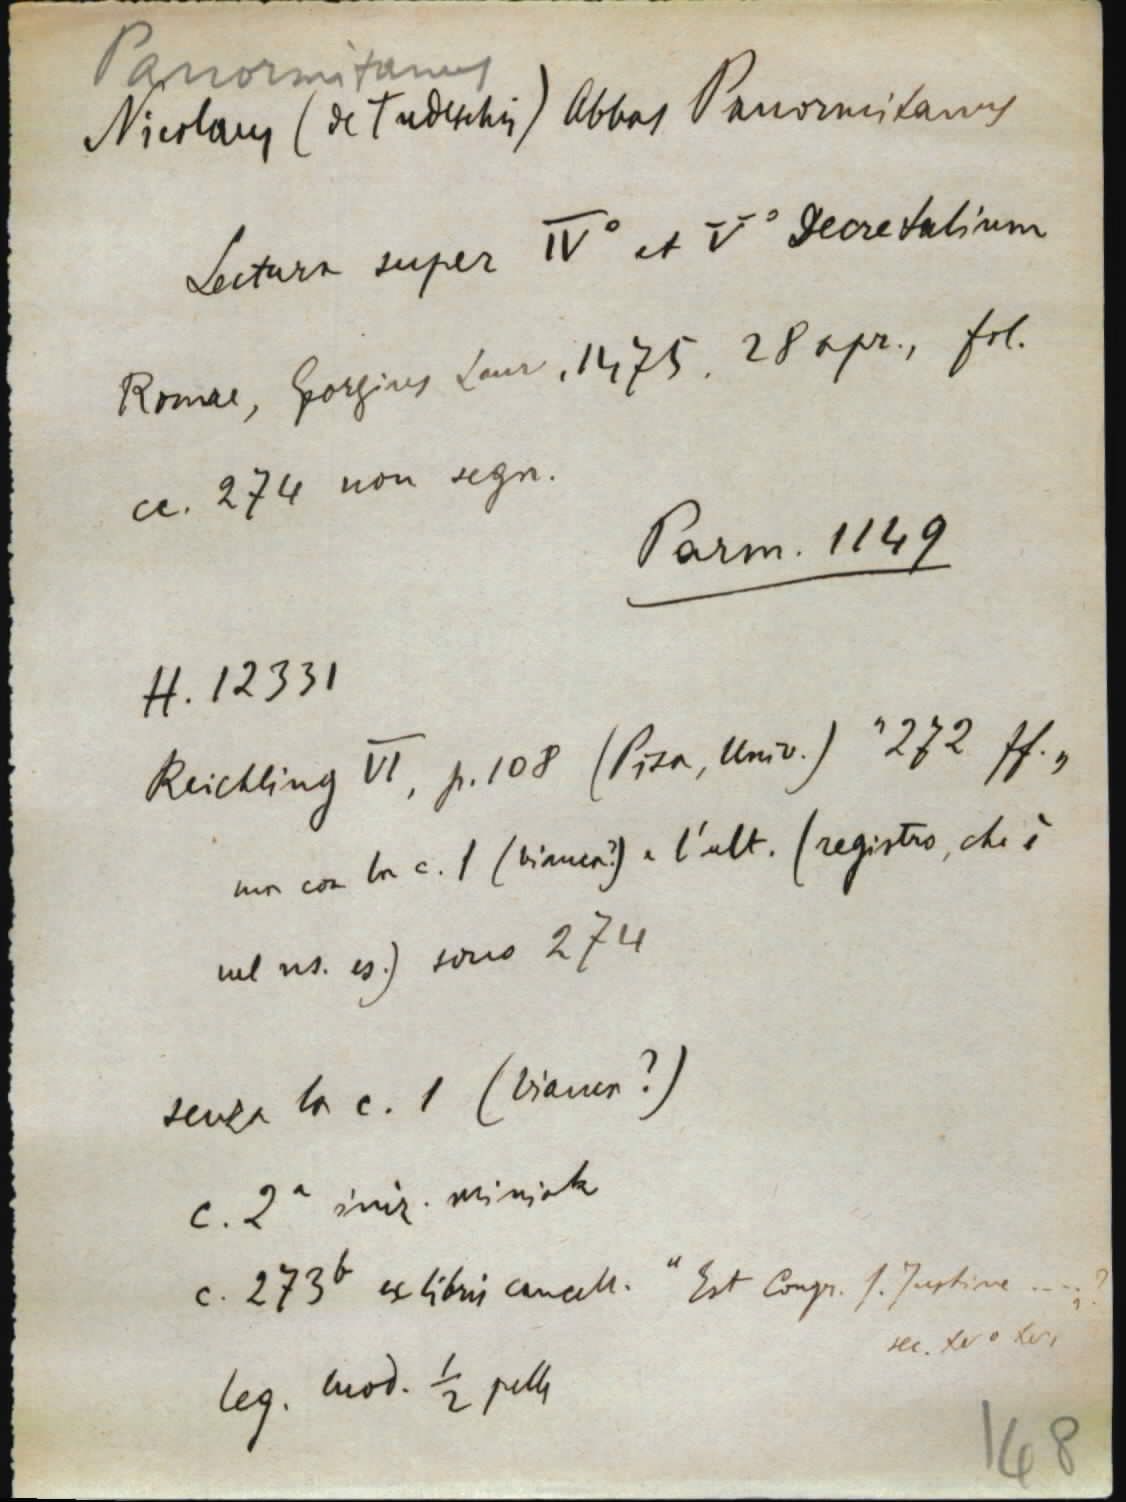 Panormitanus
Nicolaus (de Tudeschis) Abbas Panormitanus
Lectura super IV° et V° Decretalium
Romae, Georgius Laur., 1475. 28 apr., fol.
cc. 274 non segn.
Parm. 1149
H. 12331
Reichling VI, p. 108 (Pisa, Univ.) "272 ff."
ma con la c. 1 (bianca?) e l'ult. (registro, che è
nel ns. es.) sono 274
senza la c. 1 (bianca?)
c. 2ª iniz. miniata
c. 273b ex libris cancell. "Est Congr. S. Justine ....?
sec. XV o XVI
leg. mod. ½ pelle
148